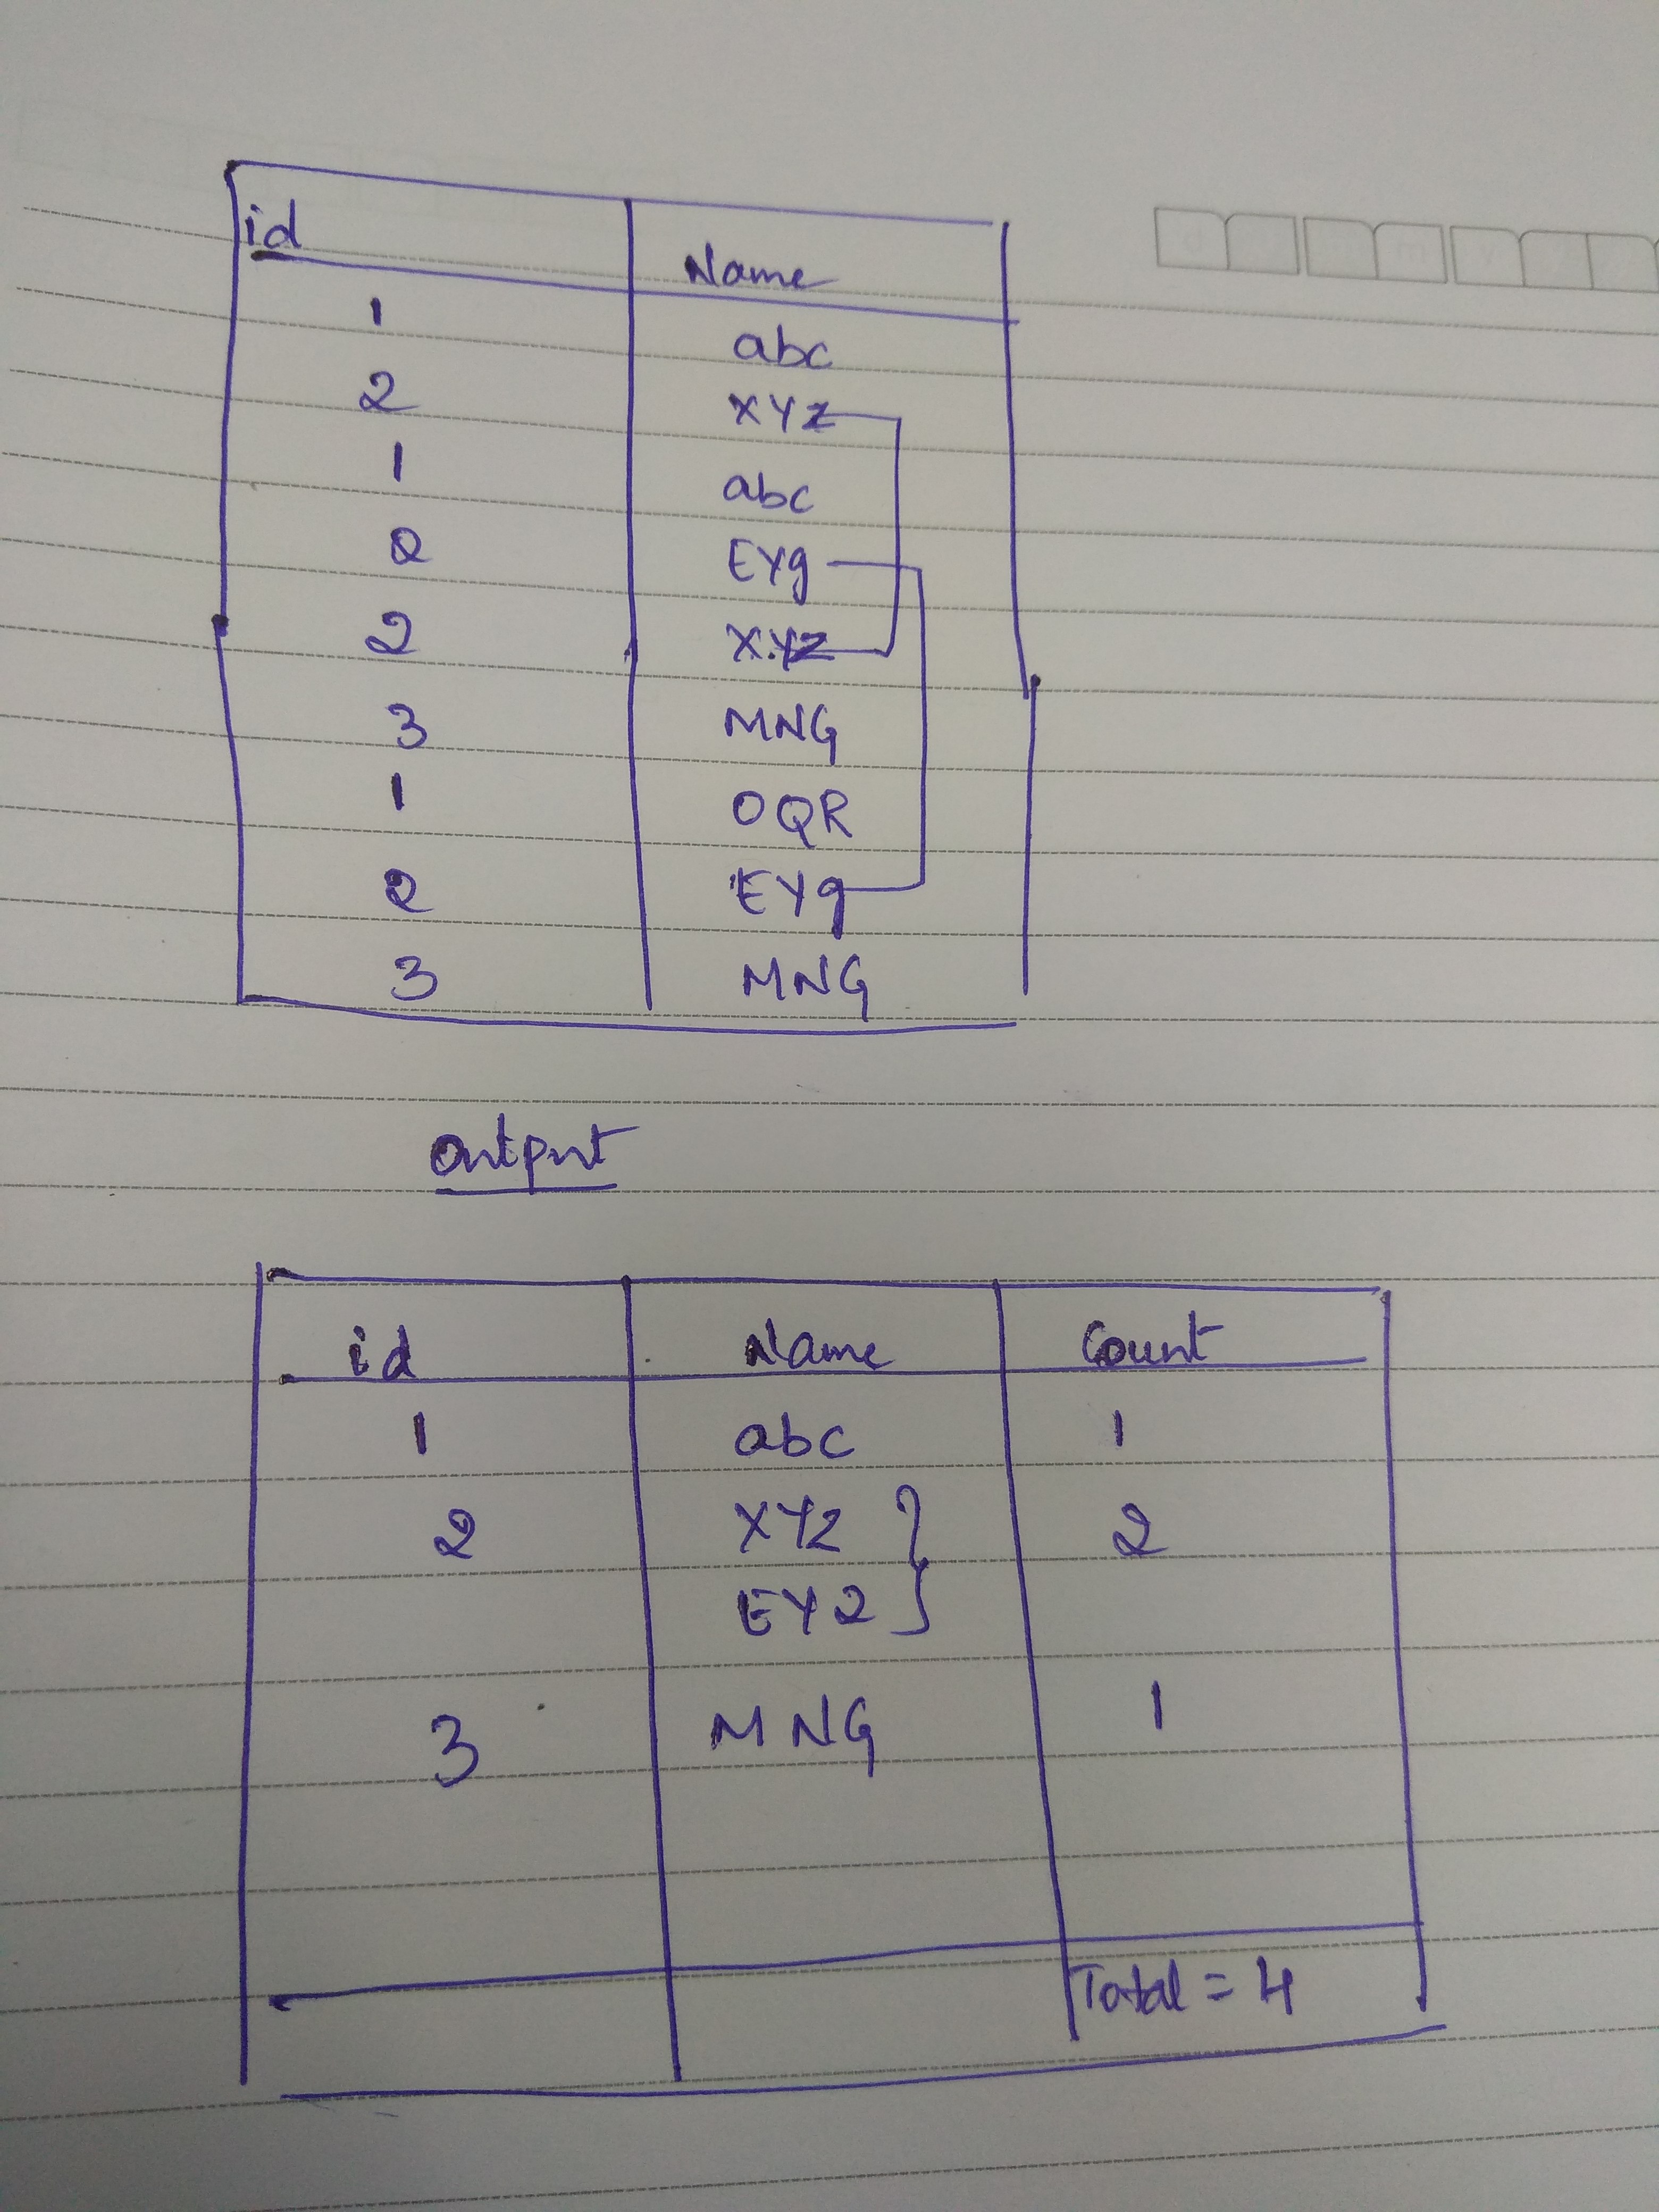 id Name
1 abc
2 XYZ
1 abc
2 EYg
2 XYZ
3 MNG
1 OQR
2 EYg
3 MNG
output
id Name Count
1 abc 1
2 XYZ 2
EY2
3 MNG 1
Total = 4